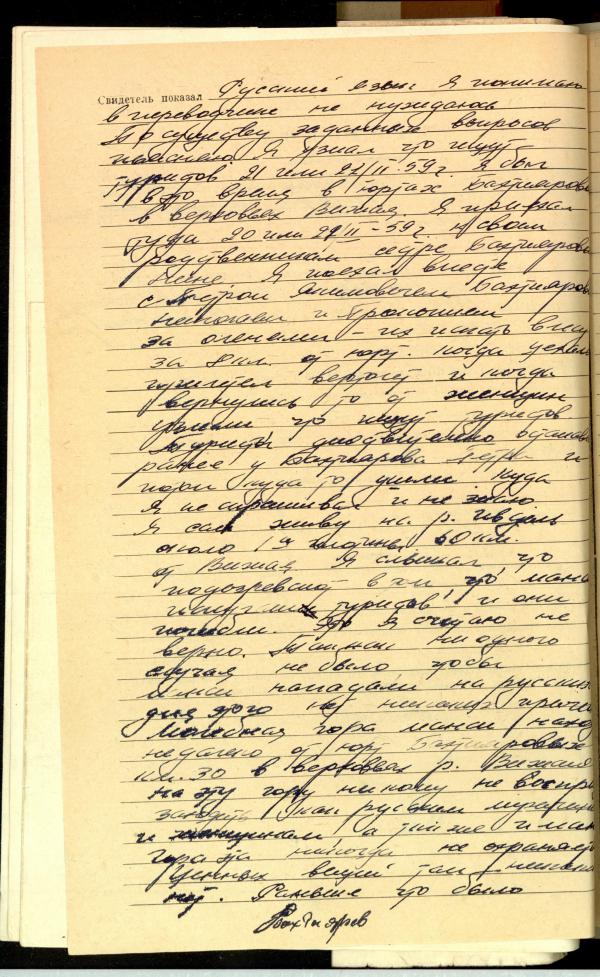 Свидетель показал Русский язык я понимаю
в переводчике не нуждаюсь
По существу заданных вопросов
поясняю Я узнал что ищут
туристов 21 или 22/II-59 г. Я был
в это время в юртах Бахтиярова
в верховьях Вижая. Я приехал
туда 20 или 21/II-59 г. к своим
родственникам сестре Бахтияровой
Я поехал вместе
с Петром Якимовичем Бахтияров
Николаем и Прокопием
за оленями - их искать
за 8 км. от юрт. Когда уехали
прилетел вертолет и когда
вернулись то от женщин
узнали что ищут туристов
Туристы действительно останав
ранее у Бахтиярова Петра и
потом куда то ушли, куда
я не спрашивал и не знаю
Я сам живу на р. Ивдель
около 1го 60 км.
от Вижая. Я слышал что
подозревают в том что манси
туристов и они
погибли. Это я считаю не
верно. Таких ни одного
случая не было чтобы
манси нападали на русских
для этого нет никаких причин
Молебная гора манси наход
недалеко от юрт Бахтияровых
км. 30 в верховьях р. Вижая
на эту гору никому не воспр
заходить как русским мужчинам
и женщинам а также и ман
гора эта никогда не охраняет
Ценных вещей там никаких
нет. Раньше что было
Бахтияров